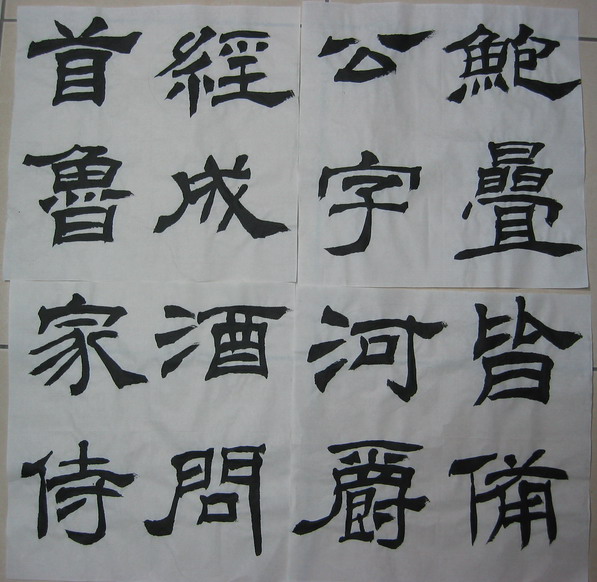 鮑疊皆備
公字河爵
經成酒問
首魯家侍